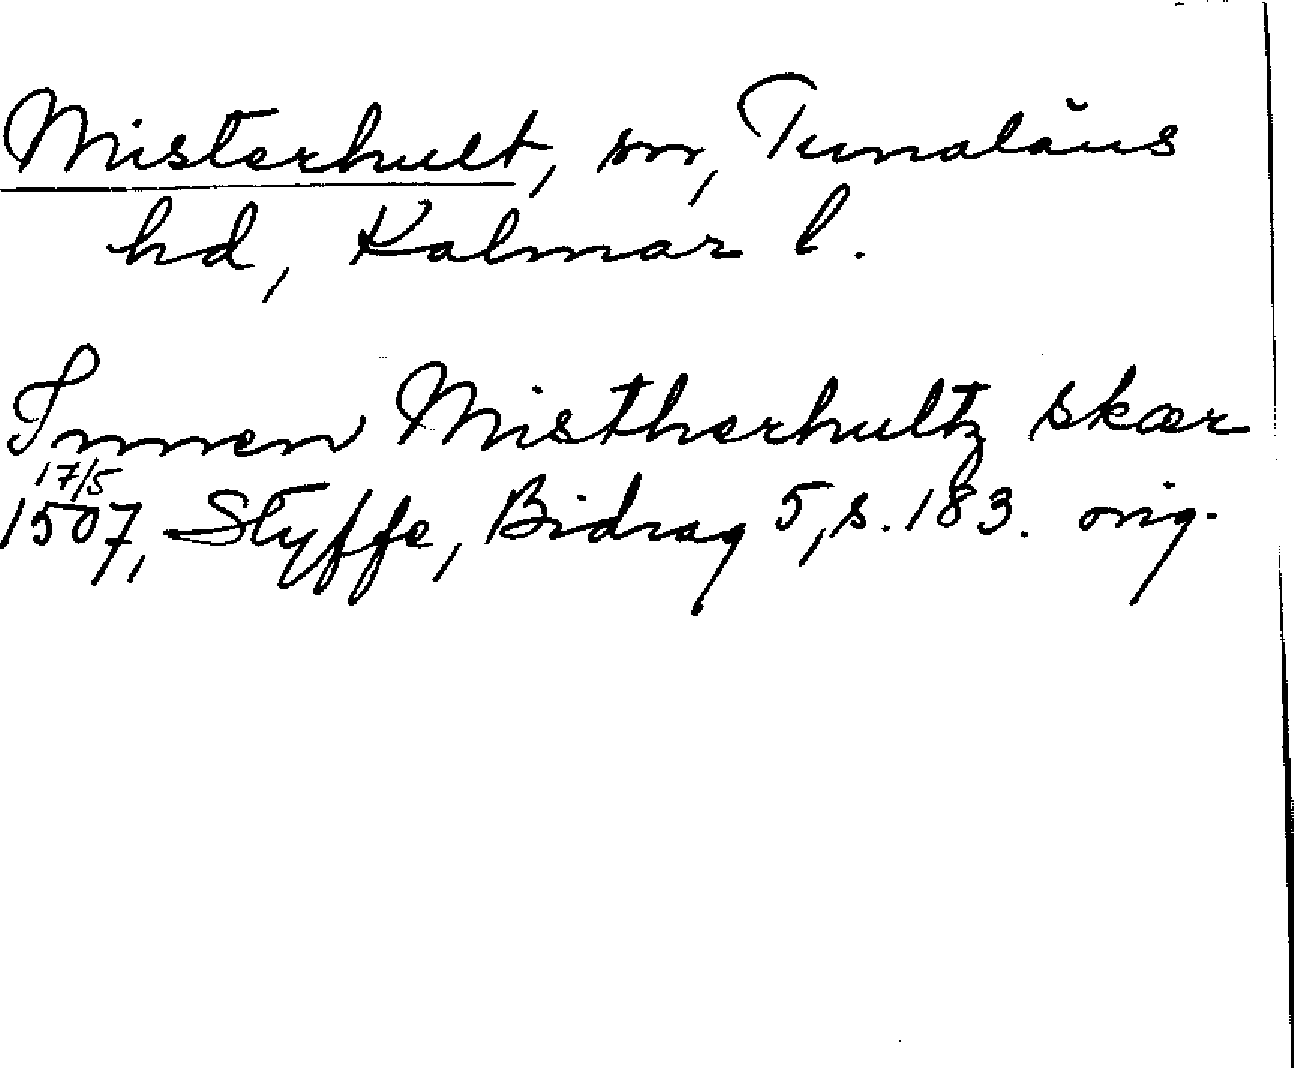 Misterhult, sn, Tunaläns
hd, Kalmar l.
Innen Mistherhultz skær
17/5
1507, Styffe, Bidrag 5, s. 183. orig.